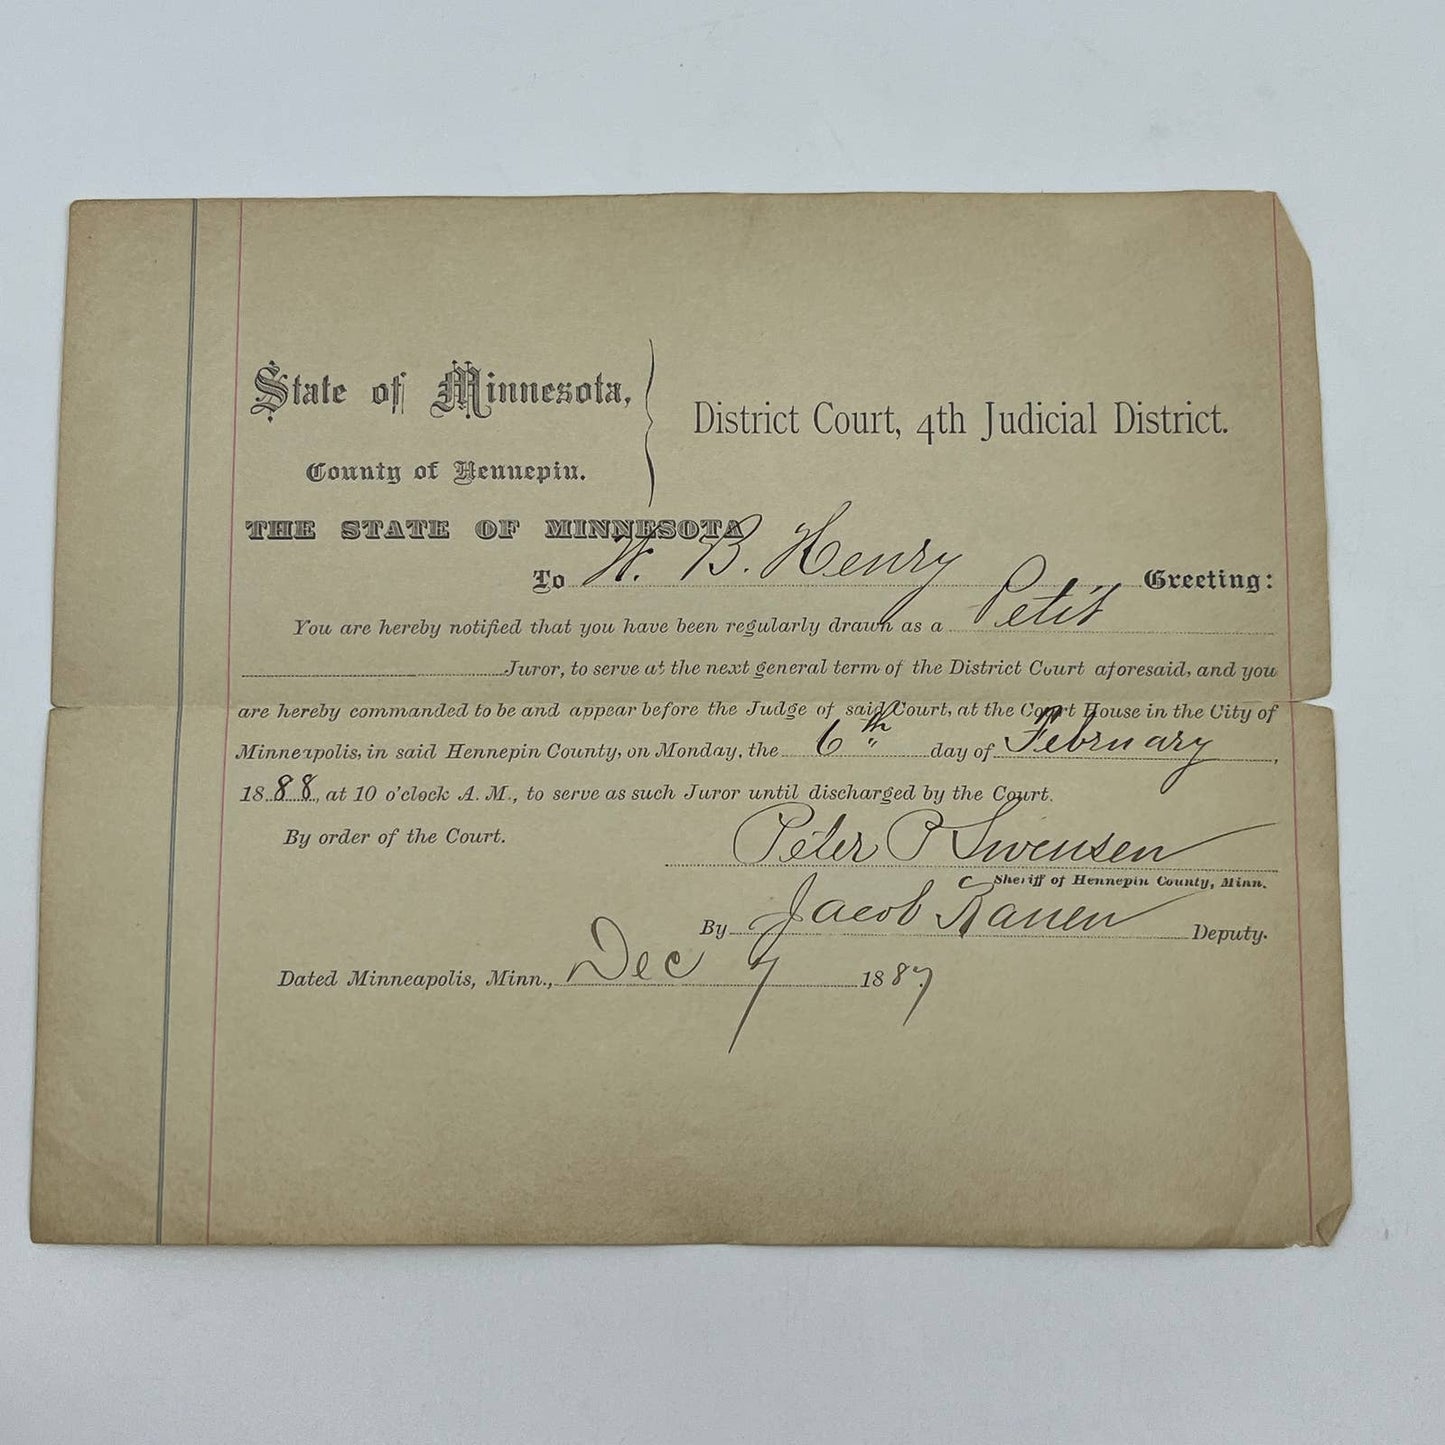 State of Minnesota,
County of Hennepin.
District Court, 4th Judicial District.
THE STATE OF MINNESOTA
To W. B. Henry Greeting:
You are hereby notified that you have been regularly drawn as a Petit
Juror, to serve at the next general term of the District Court aforesaid, and you
are hereby commanded to be and appear before the Judge of said Court, at the Court House in the City of
Minneapolis, in said Hennepin County, on Monday, the 6th day of February,
1888, at 10 o'clock A. M., to serve as such Juror until discharged by the Court.
By order of the Court.
Peter P Swensen
Sheriff of Hennepin County, Minn.
By Jacob Deputy.
Dated Minneapolis, Minn., Dec 7 1887